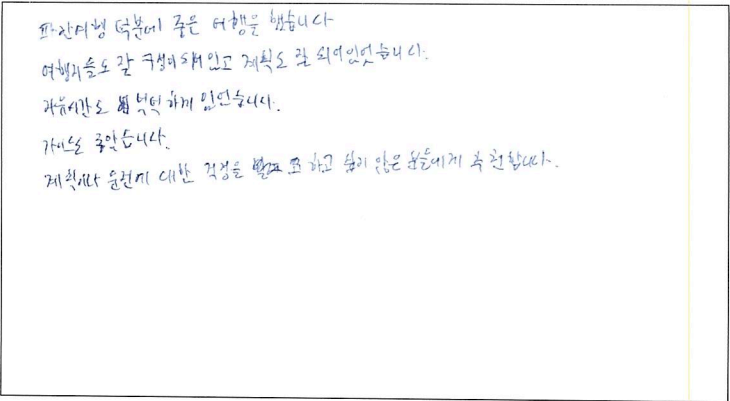 파란여행 덕분에 좋은 여행을 했습니다
여행지들도 잘 구성이 되어 있고 계획도 잘 되어있었습니다.
자유시간도 넉넉하게 있었습니다.
가이드도 좋았습니다.
계획이나 운전에 대한 걱정을 하고 싶지 않은 분들에게 추천합니다.